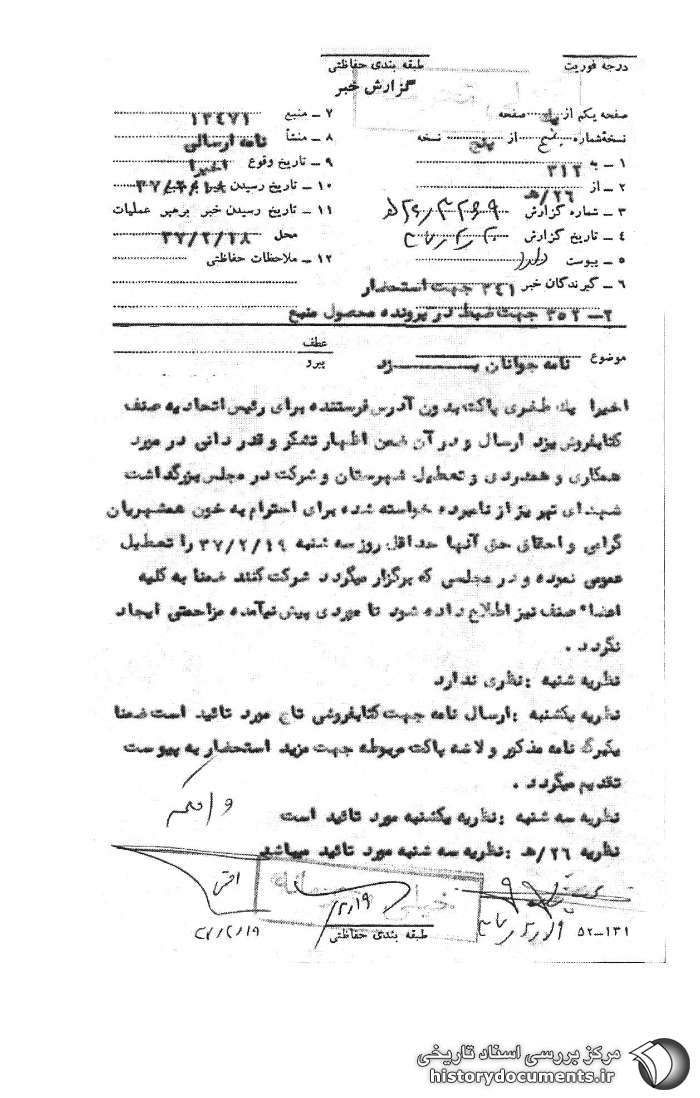 درجه فوریت
طبقه بندی حفاظتی
گزارش خبر
صفحه یکم از یک صفحه
نسخه شماره پنج از پنج نسخه
۱ ـ به ۳۱۲
۲ ـ از ۲۶/هـ
۳ ـ شماره گزارش
۴ ـ تاریخ گزارش
۵ ـ پیوست دارد
۶ ـ گیرندگان خبر ۳۴۱ جهت استحضار
۲ـ ۳۵۲ جهت ضبط در پرونده محصول منبع
۷ ـ منبع ۱۳۴۷۱
۸ ـ منشأ نامه ارسالی
۹ ـ تاریخ وقوع اخیرا
۱۰ ـ تاریخ رسیدن خبر به منبع ۳۷/۲/۱۸
۱۱ ـ تاریخ رسیدن خبر برهبر عملیات
محل ۳۷/۲/۱۸
۱۲ ـ ملاحظات حفاظتی
عطف
پیرو
موضوع نامه جوانان یـــزد
اخیرا یک طغری پاکت بدون آدرس فرستنده برای رئیس اتحادیه صنف
کتابفروش یزد ارسال و در آن ضمن اظهار تشکر و قدردانی در مورد
همکاری و همدردی و تعطیل شهرستان و شرکت در مجلس بزرگداشت
شهدای تبریز از نامبرده خواسته شده برای احترام به خون همشهریان
گرامی و احقاق حق آنها حداقل روز سه شنبه ۳۷/۲/۱۹ را تعطیل
عمومی نموده و در مجلسی که برگزار میگردد شرکت کنند ضمنا به کلیه
اعضاء صنف نیز اطلاع داده شود تا موردی پیش نیامده مزاحمتی ایجاد
نگردد .
نظریه شنبه : نظری ندارد
نظریه یکشنبه : ارسال نامه جهت کتابفروشی تاج مورد تائید است ضمنا
یکبرگ نامه مذکور و لاشه پاکت مربوطه جهت مزید استحضار به پیوست
تقدیم میگردد .
نظریه سه شنبه : نظریه یکشنبه مورد تائید است
نظریه ۲۶/هـ : نظریه سه شنبه مورد تائید میباشد
خیلی محرمانه
۲/۱۹
طبقه بندی حفاظتی
۵۲-۱۳۱
مرکز بررسی اسناد تاریخی
historydocuments.ir